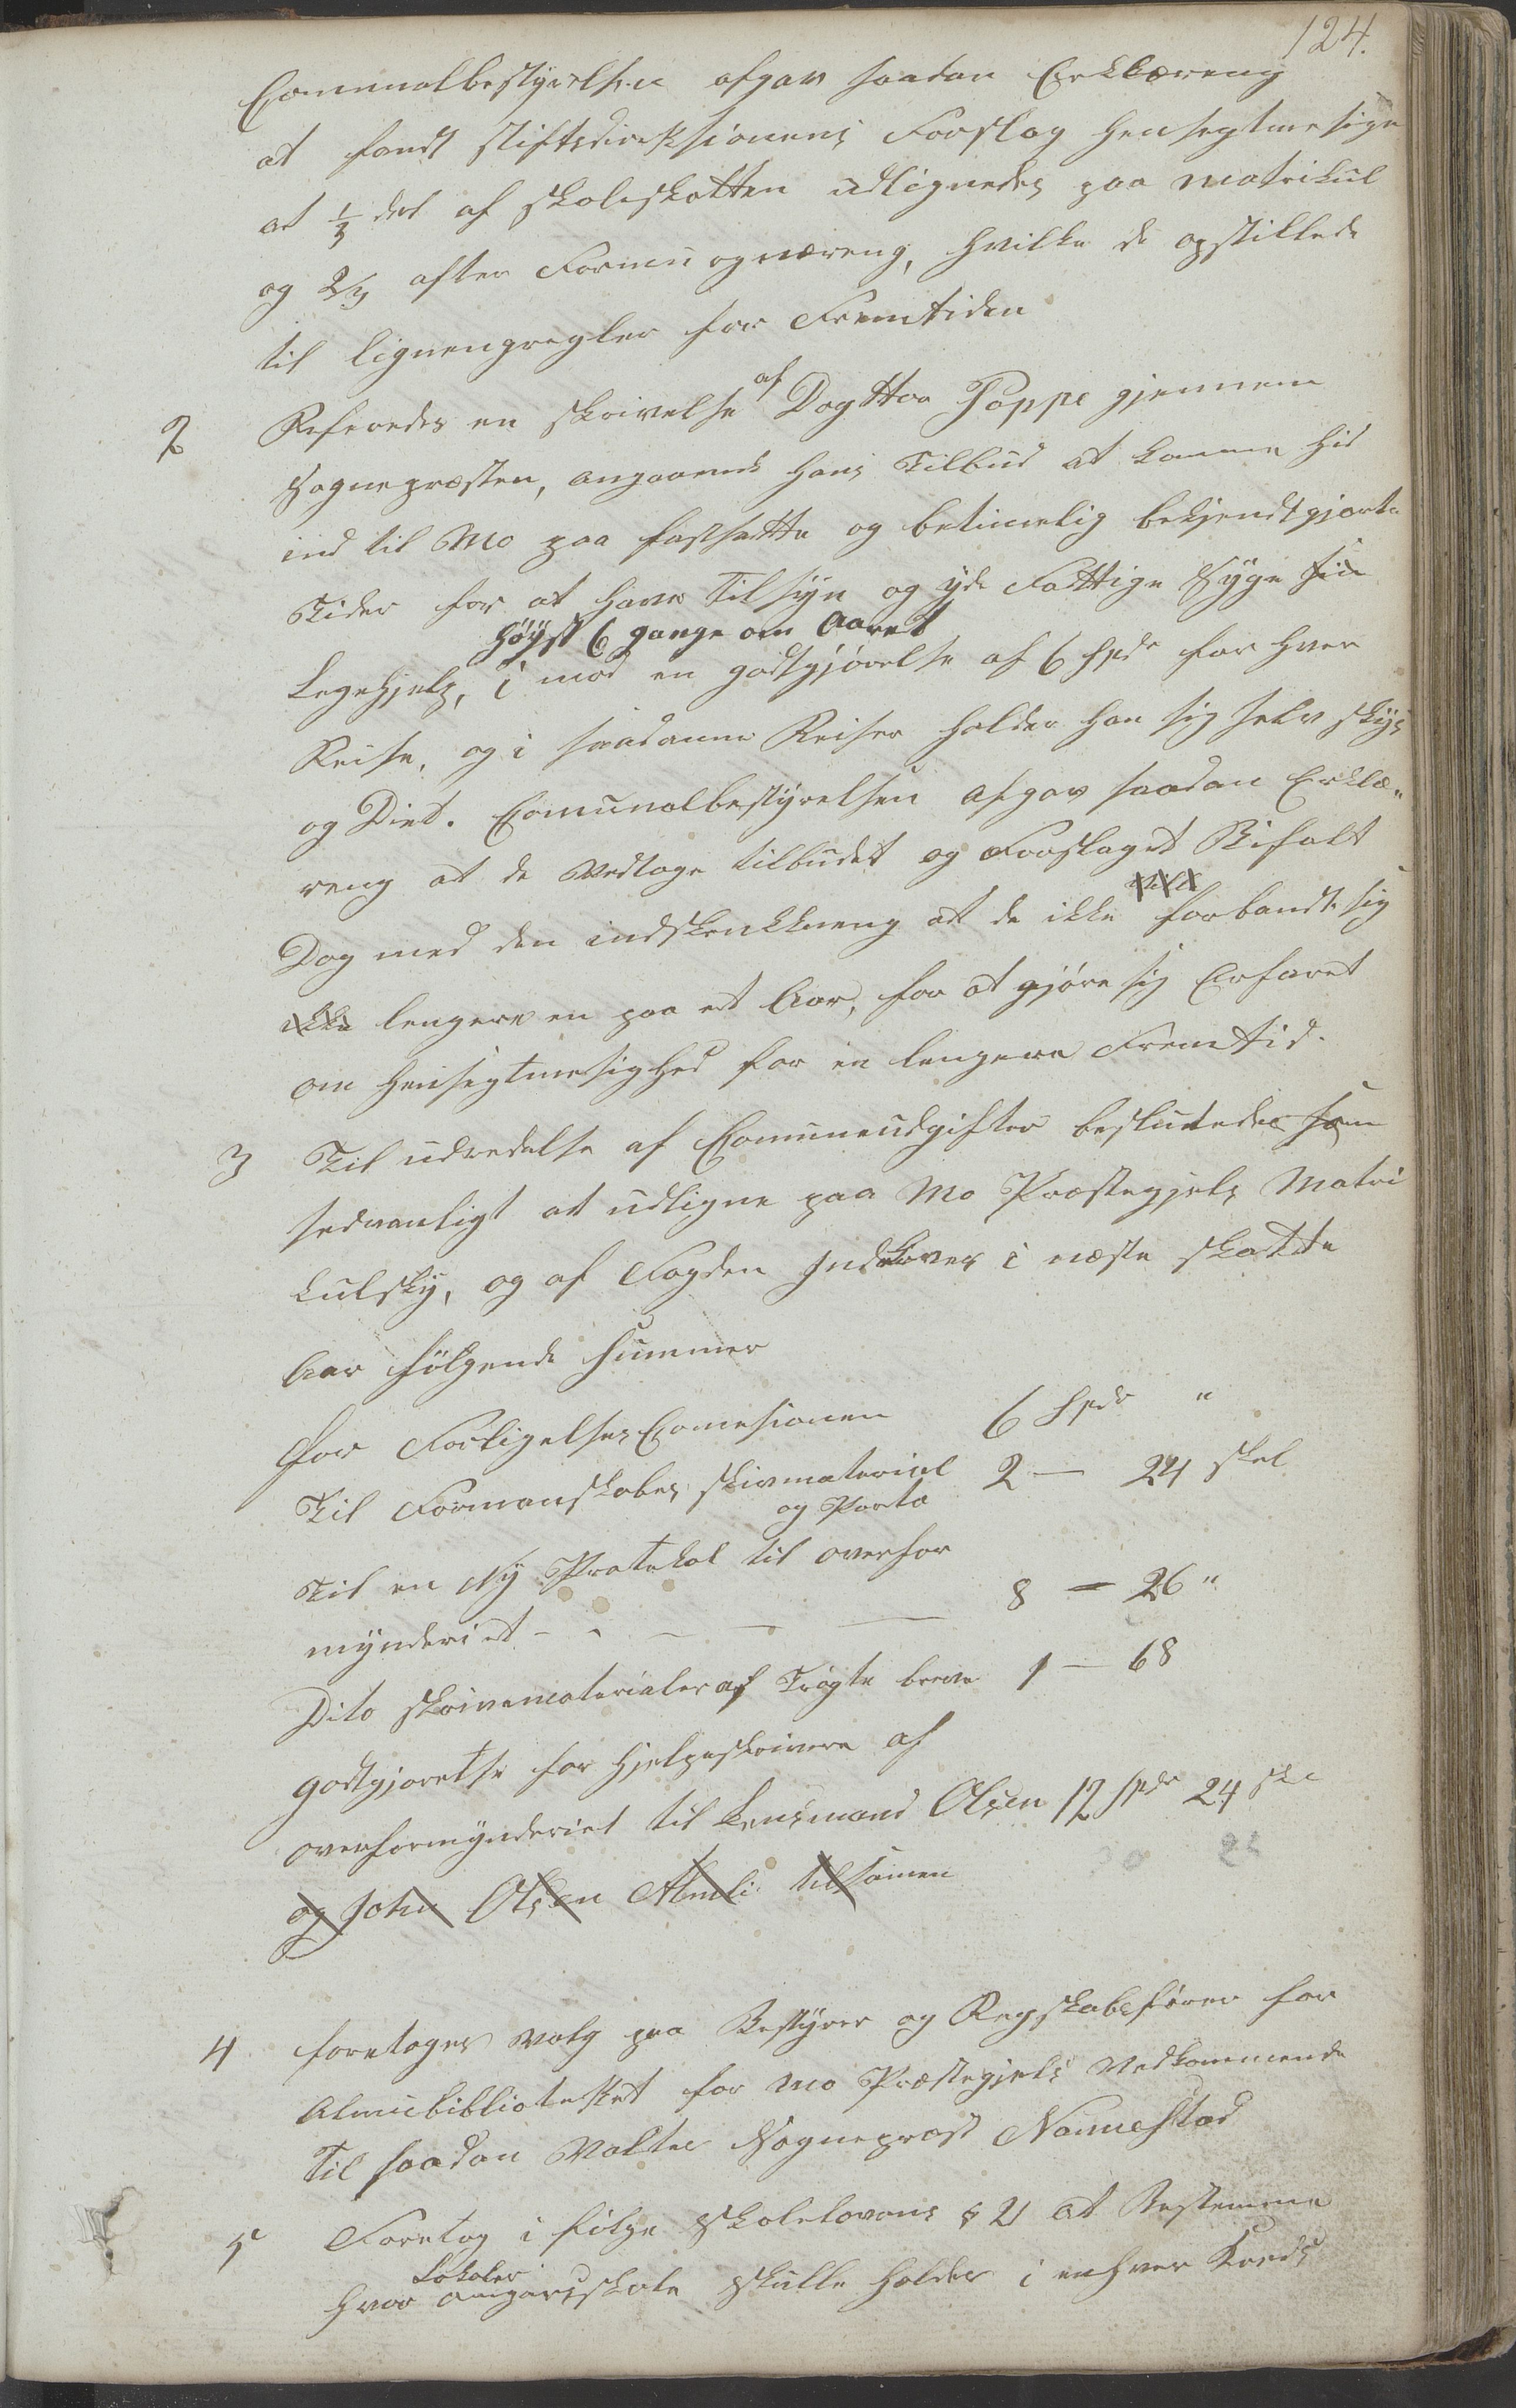 124.
Communalbestyrelsen afgav saadan Erklæreng
at fandt Stiftsdireksionens Forslag hensegtmesige
at 1/3 del af skoleskatten udlignedes paa Matrikul
og 2/3 after Formu og næreng, hvilke de opstillede
til ligneng regler for Fremtiden
2 Refereredes en skrivelse af Dogttor Poppe gjennem
Sognepræsten, angaaende hans Tilbud at komme hid
ind til Mo paa fastsatte og betimelig bekjendtgjorte
Tider for at have Tilsyn og yde Fattige Syge sin
høyst 6 gange om Aaret
Legehjelp, i mod en godtgjørelse af 6 Spdr for hver
Reise, og i saadanne Reiser holder han sig selv skys
og Diet. Comunalbestyrelsen afgav saadan Erklæ-
reng at de Vedtage tilbudet og Forslaget Bifalt
Dog med den indskrenkkneng at de ikke forbandt sig
ikke lengere en paa et Aar, for at gjøre sig Erfaret
om Hensigtmesighed for en lengere Fremtid.
3 Til udredelse af Comuneudgifter beslutedes som
sedvanligt at udligne paa Mo Præstegjels Matri
kulsky, og af Fogden Indkræves i næste skatte
Aar følgende Summer
For Forligelses Comesionen 6 Spdr "
Til Formanskabes skivmateriel 2 — 24 skel
og Porto
Til en Ny Protokol til overfor
mynderiet - - - — — 8 — 26 "
Dito skrivematerialer af Trøgte breve 1 — 68
godtgjørelse for hjelpeskrivere af
overformynderiet til Lensmand Olsen 12 Spdr 24 skl
og John Olsen Almli tilsamen
4 foretages valg paa Bestyrer og Regskabsfører for
Almuebiblioteket for Mo Præstegjels Vedkommende
Til saadan Valtes Sogneprest Nannestad
5 Foretog i følge Skolelovens § 21 at Bestemme
Lokaler
hvor omgangsskole skulle holdes i enhver Kreds